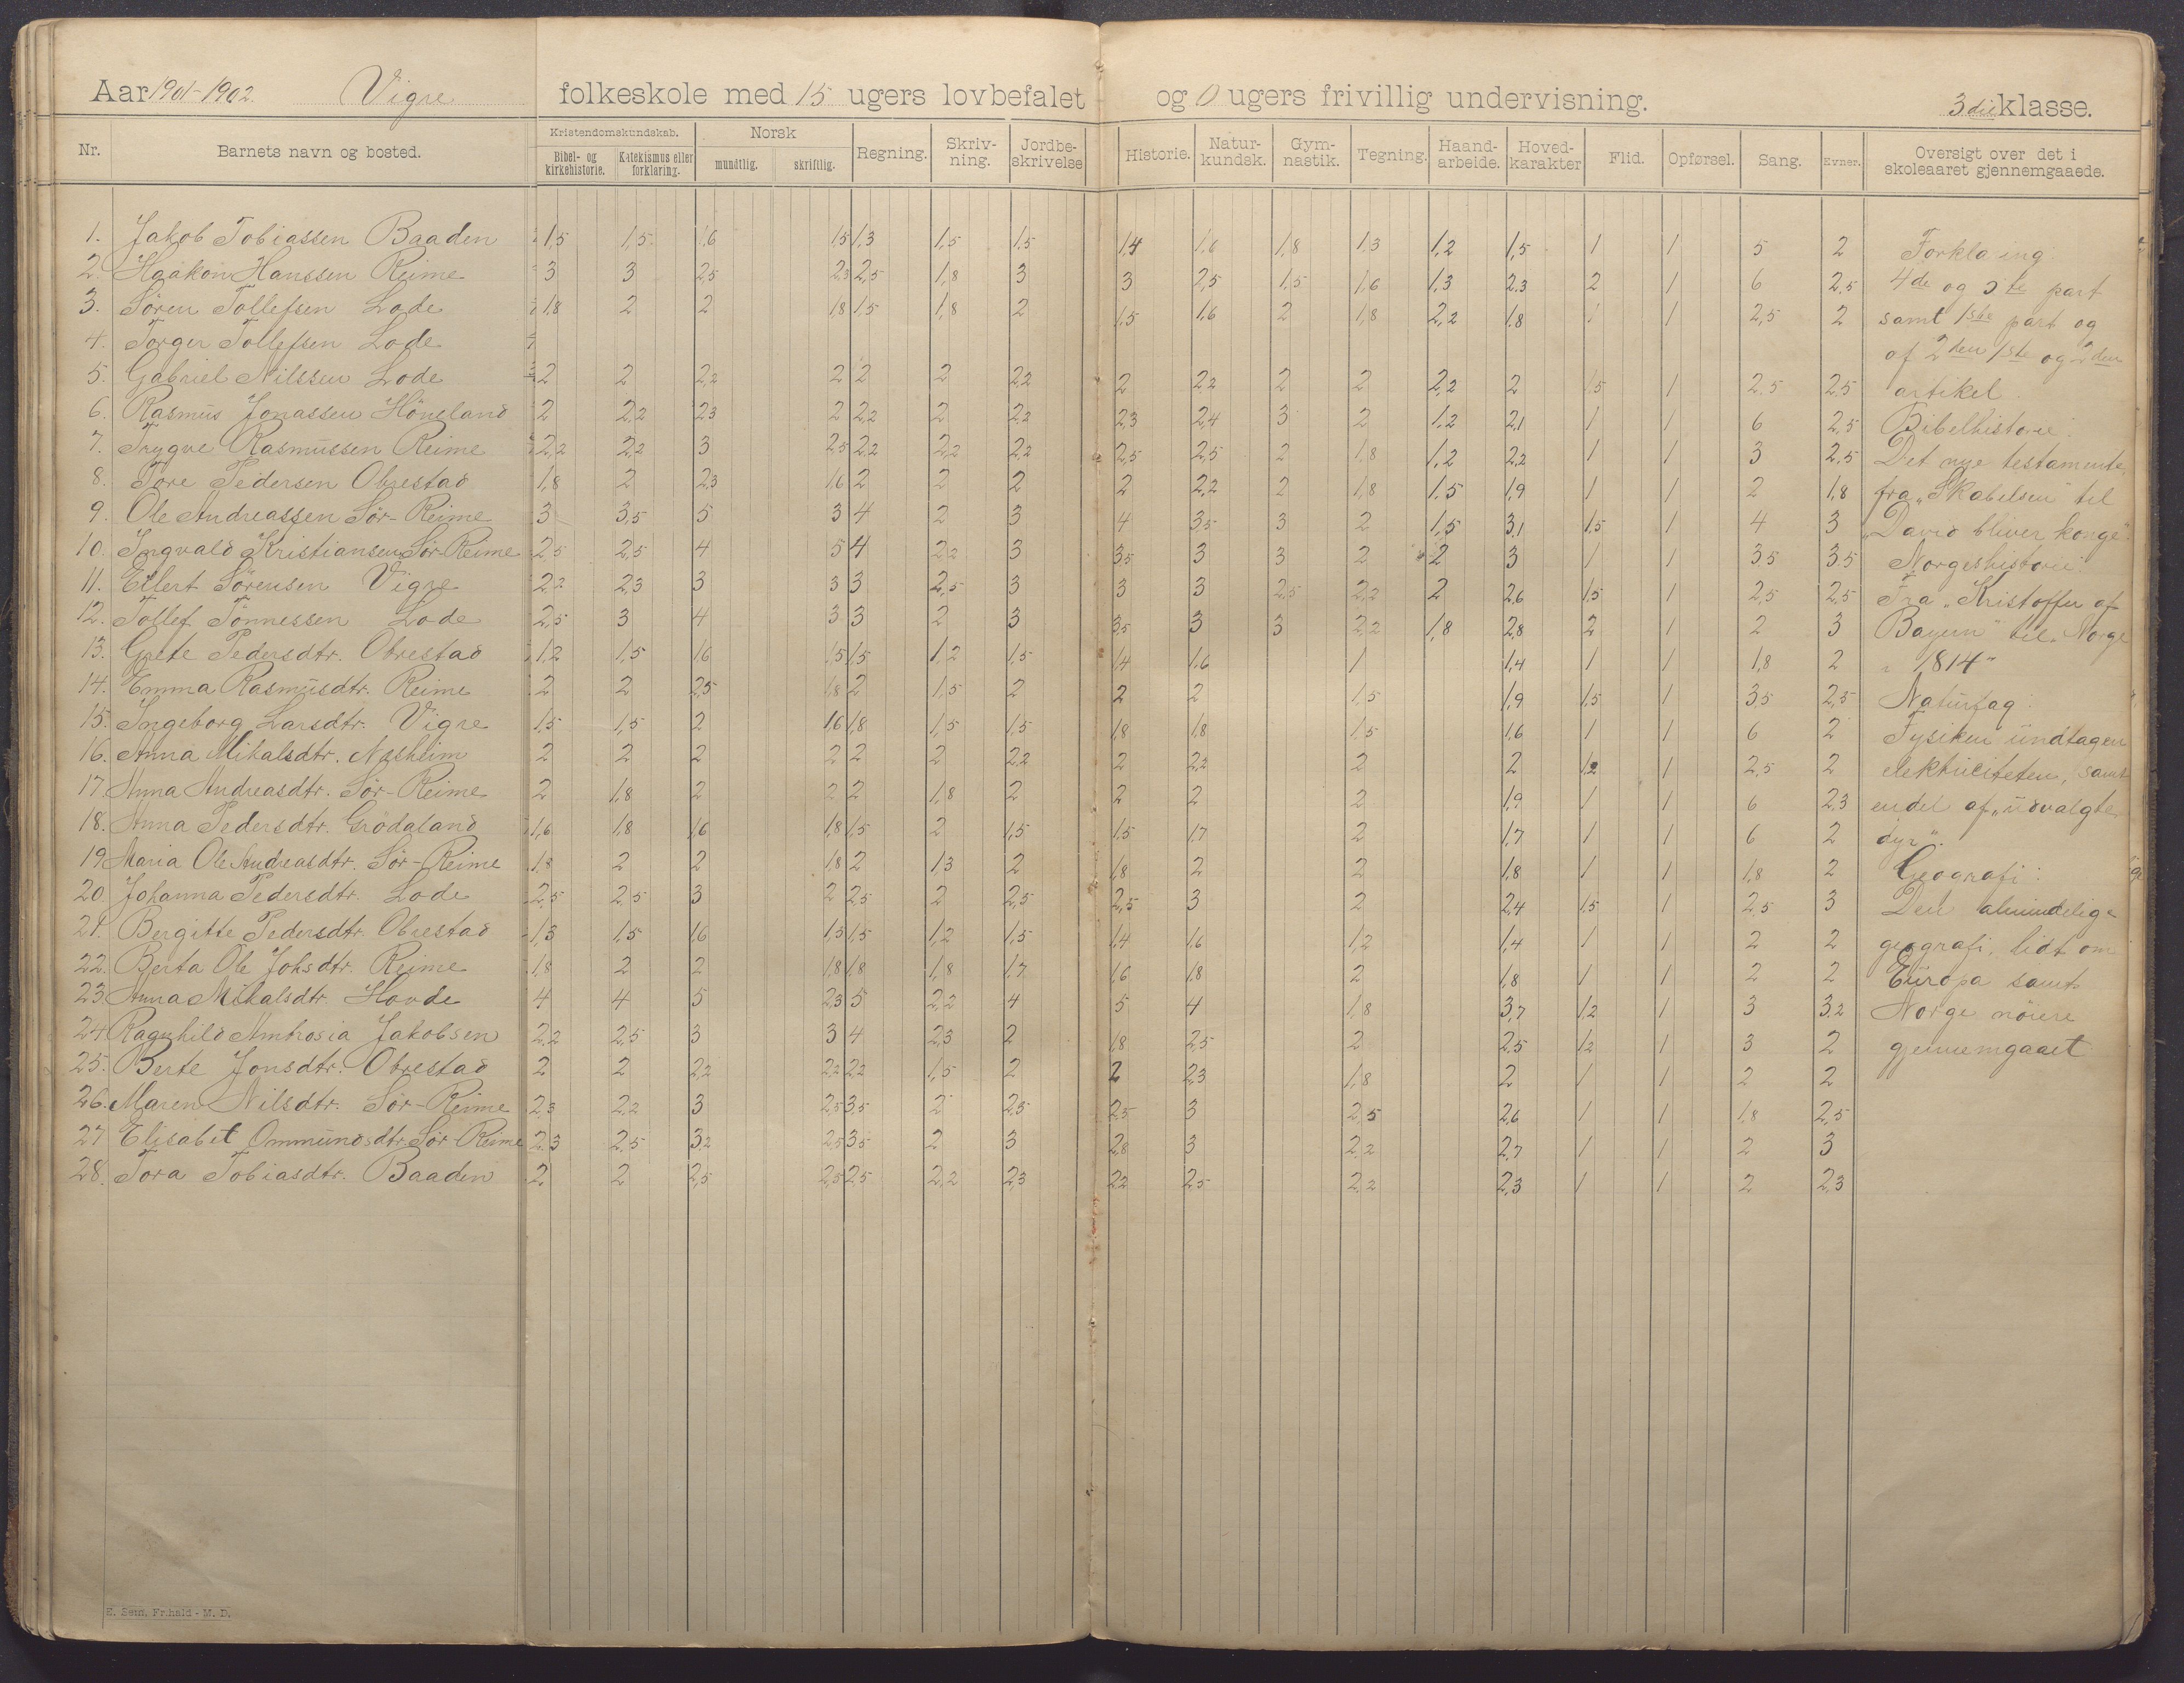 Aar 1901-1902. Vigre folkeskole med 15 ugers lovbefalet og 0 ugers frivillig undervisning. 3die klasse.
Nr. Barnets navn og bosted. Kristendomskundskab. Bibel- og kirkehistorie. Katekismus eller forklaring. Norsk mundtlig. skriftlig. Regning. Skrivning. Jordbeskrivelse Historie. Naturkundsk. Gymnastik. Tegning. Haandarbeide. Hovedkarakter Flid. Opførsel. Sang. Evner. Oversigt over det i skoleaaret gjennemgaaede.
1. Jakob Tobiassen Baaden 1,5 1,5 1,6 1,5 1,3 1,5 1,5 1,4 1,6 1,8 1,3 1,2 1,5 1 1 5 2
2. Haakon Hanssen Reime 3 3 2,5 2,3 2,5 1,8 3 3 2,5 1,5 1,6 1,3 2,3 2 1 6 2,5
3. Søren Tollefsen Lode 1,8 2 2 1,8 1,5 1,8 2 1,5 1,6 2 1,8 2,2 1,8 1 1 2,5 2
4. Torger Tollefsen Lode
5. Gabriel Nilssen Lode 2 2 2,2 2 2 2 2,2 2 2,2 2 2 2,2 2 1,5 1 2,5 2,5
6. Rasmus Jonassen Höneland 2 2,2 2,3 2 2,2 2 2,2 2,3 2,4 3 2 1,2 2,1 1 1 6 2,5
7. Trygve Rasmussen Reime 2,2 2,2 3 2,5 2,2 2,2 2,2 2,5 2,5 2 1,8 1,2 2,2 1 1 3 2,5
8. Tore Pedersen Obrestad 1,8 2 2,3 1,6 2 2 2 2 2,2 2 1,8 1,5 1,9 1 1 2 1,8
9. Ole Andreassen Sør-Reime 3 3,5 5 3 4 2 3 4 3,5 3 2 1,5 3,1 1,5 1 4 3
10. Ingvald Kristiansen Sør-Reime 2,5 2,5 4 5 4 2,2 3 3,5 3 3 2 2 3 1 1 3,5 3,5
11. Eilert Sörensen Vigre 2,2 2,3 3 3 3 2,5 3 3 3 2,5 2,2 2 2,6 1,5 1 2,5 2,5
12. Tollef Tönnessen Lode 2,5 3 4 3 3 2 3 3,5 3 3 2,2 1,8 2,8 2 1 2 3
13. Grete Pedersdtr. Obrestad 1,2 1,5 1,6 1,5 1,5 1,2 1,5 1,4 1,6 1 1,4 1 1 1,8 2
14. Emma Rasmusdtr. Reime 2 2 2,5 1,8 2 1,5 2 2 2 1,5 1,9 1,5 1 3,5 2,5
15. Ingeborg Larsdtr. Vigre 1,5 1,5 2 1,6 1,8 1,5 1,5 1,8 1,8 1,5 1,6 1 1 6 2
16. Anna Mikalsdtr. Næsheim 2 2 2 2 2 2 2,2 2 2,2 2 2 1,2 1 2,5 2
17 Anna Andreasdtr. Sør-Reime 2 1,8 2 2 2 1,8 2 2 2 2 1,9 1 1 6 2,3
18. Anna Pedersdtr. Grödaland 1,6 1,8 1,6 1,8 1,5 2 1,5 1,5 1,7 2 1,7 1 1 6 2
19 Maria Ole Andreasdtr. Sør-Reime 1,8 2 2 1,8 2 1,3 2 1,8 2 2 1,8 1 1 1,8 2
20. Johanna Pedersdtr. Lode 2,5 2,5 3 2 2,5 2 2,5 2,5 3 2 2,4 1,5 1 2,5 3
21. Bergitte Pedersdtr. Obrestad 1,3 1,5 1,6 1,5 1,5 1,2 1,5 1,4 1,6 1,2 1,4 1 1 2 2
22. Berta Ole Johsdtr. Reime 1,8 2 2 1,8 1,8 1,8 1,7 1,6 1,8 2 1,8 1 1 2 2
23. Anna Mikalsdtr Hovde 4 4 5 2,3 5 2,2 4 5 4 1,8 3,7 1,2 1 3 3,2
24 Ragnhild Ambrosia Jakobsen 2,2 2,5 3 3 4 2,3 2 1,8 2,5 2 2,5 1,2 1 3 2
25. Berte Jonsdtr. Obrestad 2 2 2,2 2,2 2,2 1,5 2 2 2,3 1,8 2 1 1 2 2
26. Maren Nilsdtr. Sör-Reime 2,3 2,2 3 2,5 3,5 2 2,5 2,5 3 2,5 2,6 1 1 1,8 2,5
27 Elisabet Ommundsdtr Sør Reime 2,3 2,5 3,2 2,5 3,5 2 3 2,8 3 2,2 2,7 1 1 2 3
28. Tora Tobiasdtr. Baaden 2 2 2,5 2,5 2,5 2,2 2,3 2,2 2,5 2,2 2,3 1 1 2 2,3
Forklaing:
4de og 5te part
samt 1ste part og
af 2den 1ste og 2den
artikel.
Bibelhistorie:
Det nye testamente,
fra „Skabelsen" til
„David bliver konge".
Norgeshistorie:
Fra „Kristoffer af
Bayern" til „Norge
i 1814"
Naturfag:
Fysiken undtagen
elektriciteten, samt
endel af „udvalgte
dyr".
Geografi:
Den almindelige
geografi, lidt om
Europa samt
Norge nöiere
gjennemgaaet
E. Sem. Fr.hald - M. D.